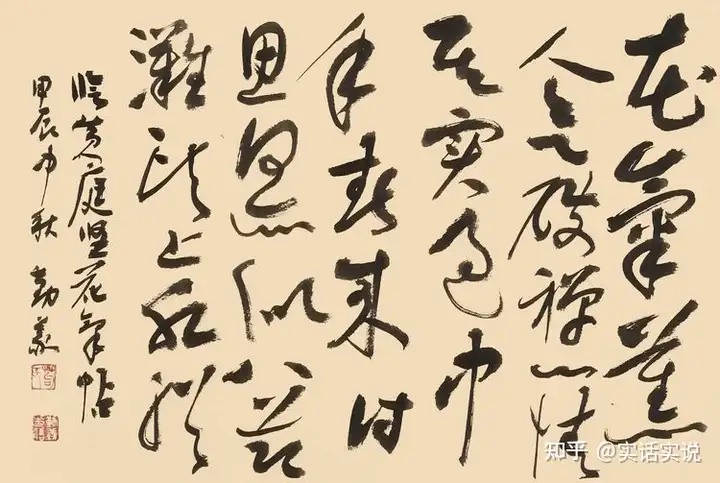 花氣薰
人欲破禪心情
其實過中
年春來詩
思何所似八節
灘頭上水船
臨黃庭堅花氣帖
甲辰中秋
知乎 @实话实说